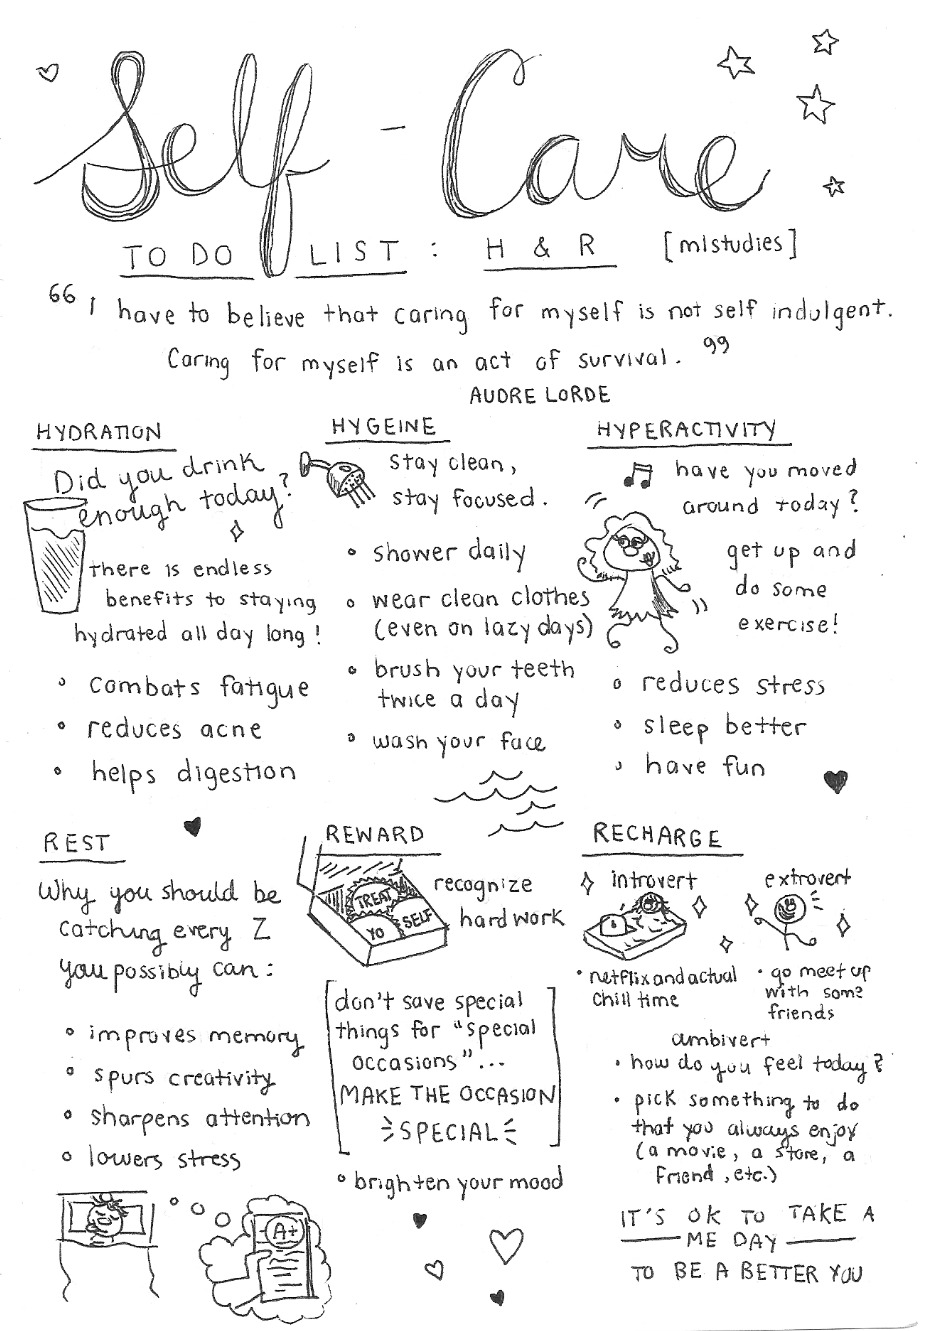 Self-Care
TO DO LIST: H & R [mistudies]
“I have to believe that caring for myself is not self indulgent.
Caring for myself is an act of survival.”
AUDRE LORDE
HYDRATION
Did you drink
enough today?
there is endless
benefits to staying
hydrated all day long!
combats fatigue
reduces acne
helps digestion
HYGEINE
stay clean,
stay focused.
shower daily
wear clean clothes
(even on lazy days)
brush your teeth
twice a day
wash your face
HYPERACTIVITY
have you moved
around today?
get up and
do some
exercise!
reduces stress
sleep better
have fun
REST
Why you should be
catching every Z
you possibly can:
improves memory
spurs creativity
sharpens attention
lowers stress
A+
REWARD
TREAT
YO SELF
recognize
hard work
[don't save special
things for "special
occasions"...
MAKE THE OCCASION
SPECIAL]
brighten your mood
RECHARGE
introvert
netflix and actual
chill time
extrovert
go meet up
with some
friends
ambivert
how do you feel today?
pick something to do
that you always enjoy
(a movie, a store, a
friend, etc.)
IT'S OK TO TAKE A
ME DAY
TO BE A BETTER YOU